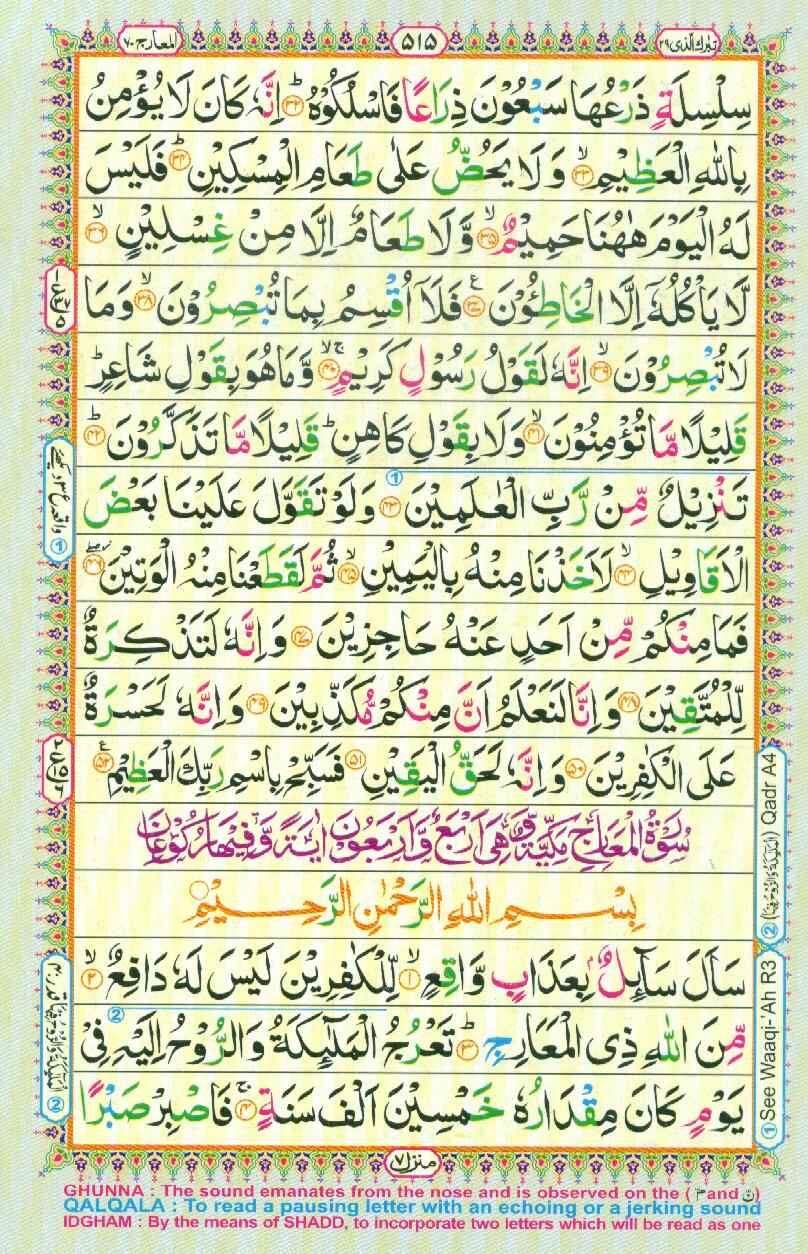 المعارج ٧٠
٥١٥
تبرك الذی ٢٩
سِلْسِلَةٍ ذَرْعُهَا سَبْعُوْنَ ذِرَاعًا فَاسْلُكُوْهُ ؕ﴿۳۲﴾ اِنَّهٗ كَانَ لَا يُؤْمِنُ
بِاللّٰهِ الْعَظِيْمِ ۙ﴿۳۳﴾ وَ لَا يَحُضُّ عَلٰى طَعَامِ الْمِسْكِيْنِ ؕ﴿۳۴﴾ فَلَيْسَ
لَهُ الْيَوْمَ هٰهُنَا حَمِيْمٌ ۙ﴿۳۵﴾ وَّ لَا طَعَامٌ اِلَّا مِنْ غِسْلِيْنٍ ۙ﴿۳۶﴾
لَّا يَاْكُلُهٗۤ اِلَّا الْخَاطِـُٔوْنَ ﴿۳۷﴾ ع فَلَاۤ اُقْسِمُ بِمَا تُبْصِرُوْنَ ۙ﴿۳۸﴾ وَ مَا
لَا تُبْصِرُوْنَ ۙ﴿۳۹﴾ اِنَّهٗ لَقَوْلُ رَسُوْلٍ كَرِيْمٍ ۚۙ﴿۴۰﴾ وَّ مَا هُوَ بِقَوْلِ شَاعِرٍ ؕ
قَلِيْلًا مَّا تُؤْمِنُوْنَ ۙ﴿۴۱﴾ وَ لَا بِقَوْلِ كَاهِنٍ ؕ قَلِيْلًا مَّا تَذَكَّرُوْنَ ؕ﴿۴۲﴾
تَنْزِيْلٌ مِّنْ رَّبِّ الْعٰلَمِيْنَ ﴿۴۳﴾ وَ لَوْ تَقَوَّلَ عَلَيْنَا بَعْضَ
الْاَقَاوِيْلِ ۙ﴿۴۴﴾ لَاَخَذْنَا مِنْهُ بِالْيَمِيْنِ ۙ﴿۴۵﴾ ثُمَّ لَقَطَعْنَا مِنْهُ الْوَتِيْنَ ﴿۴۶﴾
فَمَا مِنْكُمْ مِّنْ اَحَدٍ عَنْهُ حَاجِزِيْنَ ﴿۴۷﴾ وَ اِنَّهٗ لَتَذْكِرَةٌ
لِّلْمُتَّقِيْنَ ﴿۴۸﴾ وَ اِنَّا لَنَعْلَمُ اَنَّ مِنْكُمْ مُّكَذِّبِيْنَ ﴿۴۹﴾ وَ اِنَّهٗ لَحَسْرَةٌ
عَلَى الْكٰفِرِيْنَ ﴿۵۰﴾ وَ اِنَّهٗ لَحَقُّ الْيَقِيْنِ ﴿۵۱﴾ فَسَبِّحْ بِاسْمِ رَبِّكَ الْعَظِيْمِ ﴿۵۲﴾ ع
سُوْرَةُ الْمَعَارِجِ مَكِّيَّةٌ وَّهِىَ اَرْبَعٌ وَّاَرْبَعُوْنَ اٰيَةً وَّفِيْهَا رُكُوْعَانِ
بِسْمِ اللّٰهِ الرَّحْمٰنِ الرَّحِيْمِ
سَاَلَ سَآئِلٌۢ بِعَذَابٍ وَّاقِعٍ ۙ﴿۱﴾ لِّلْكٰفِرِيْنَ لَيْسَ لَهٗ دَافِعٌ ۙ﴿۲﴾
مِّنَ اللّٰهِ ذِى الْمَعَارِجِ ؕ﴿۳﴾ تَعْرُجُ الْمَلٰٓئِكَةُ وَ الرُّوْحُ اِلَيْهِ فِىْ
يَوْمٍ كَانَ مِقْدَارُهٗ خَمْسِيْنَ اَلْفَ سَنَةٍ ۚ﴿۴﴾ فَاصْبِرْ صَبْرًا
② Qadr A4
① See Waaqi-'Ah R3
منزل ٧
GHUNNA : The sound emanates from the nose and is observed on the ( م and ن )
QALQALA : To read a pausing letter with an echoing or a jerking sound
IDGHAM : By the means of SHADD, to incorporate two letters which will be read as one